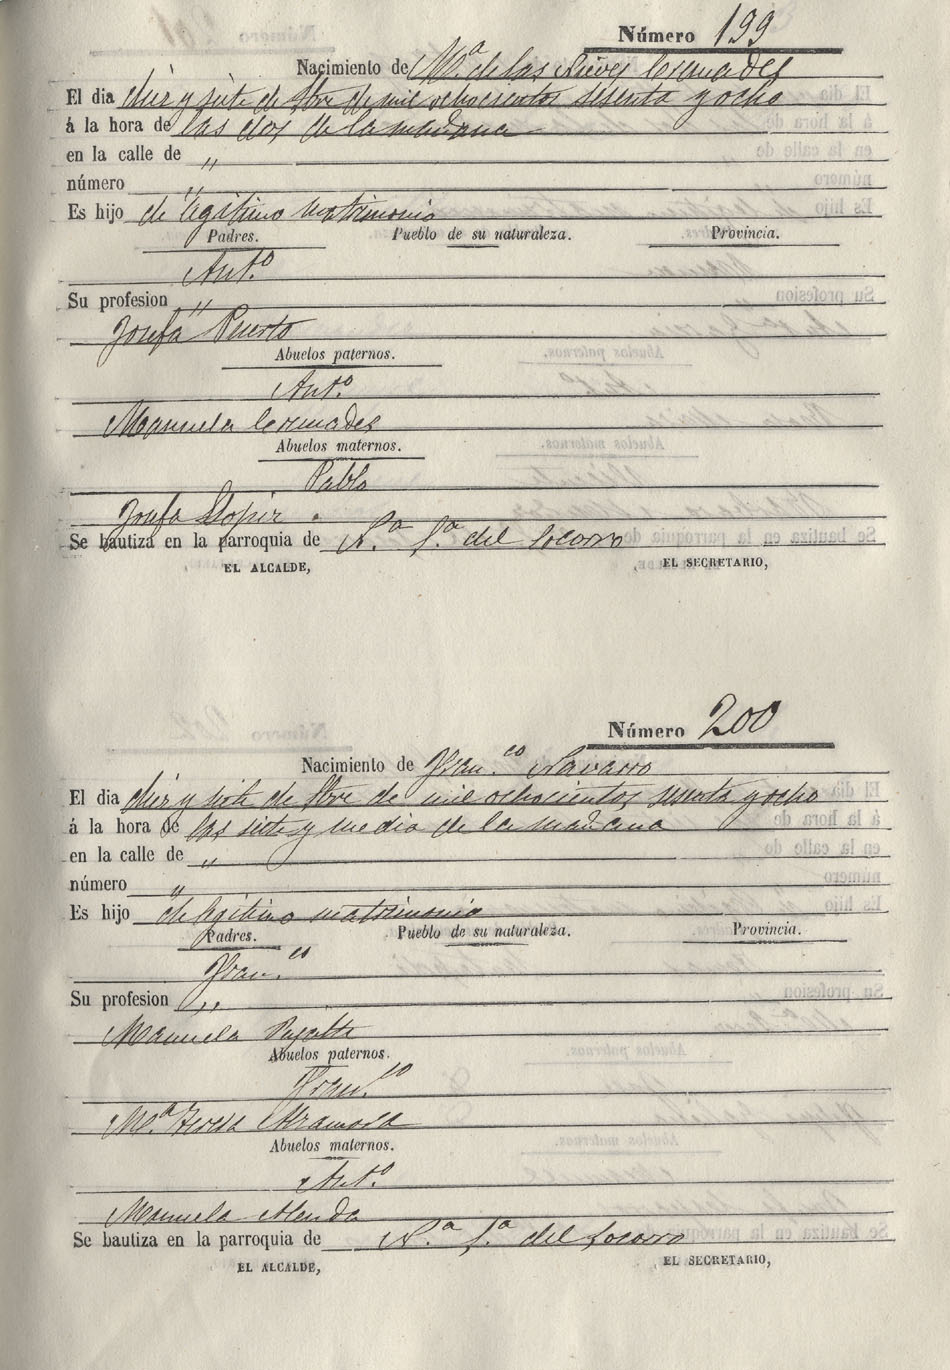 Número 199
Nacimiento de Mª de las Nieves Cremades
El dia diez y siete de Sbre de mil ochocientos sesenta y ocho
á la hora de las dos de la mañana
en la calle de "
número "
Es hijo de legitimo matrimonio
Padres. Pueblo de su naturaleza. Provincia.
Antº
Su profesion "
Josefa Puerto
Abuelos paternos.
Antº
Manuela Cremades
Abuelos maternos.
Pablo
Josefa Llopiz
Se bautiza en la parroquia de N.ª S.ª del Socorro
EL ALCALDE, EL SECRETARIO,
Número 200
Nacimiento de Fran.co Navarro
El dia diez y siete de Sbre de mil ochocientos sesenta y ocho
á la hora de las siete y media de la mañana
en la calle de "
número "
Es hijo de legitimo matrimonio
Padres. Pueblo de su naturaleza. Provincia.
Fran.co
Su profesion "
Manuela
Abuelos paternos.
Fran.co
Mª Teresa
Abuelos maternos.
Antº
Manuela
Se bautiza en la parroquia de N.ª S.ª del Socorro
EL ALCALDE, EL SECRETARIO,